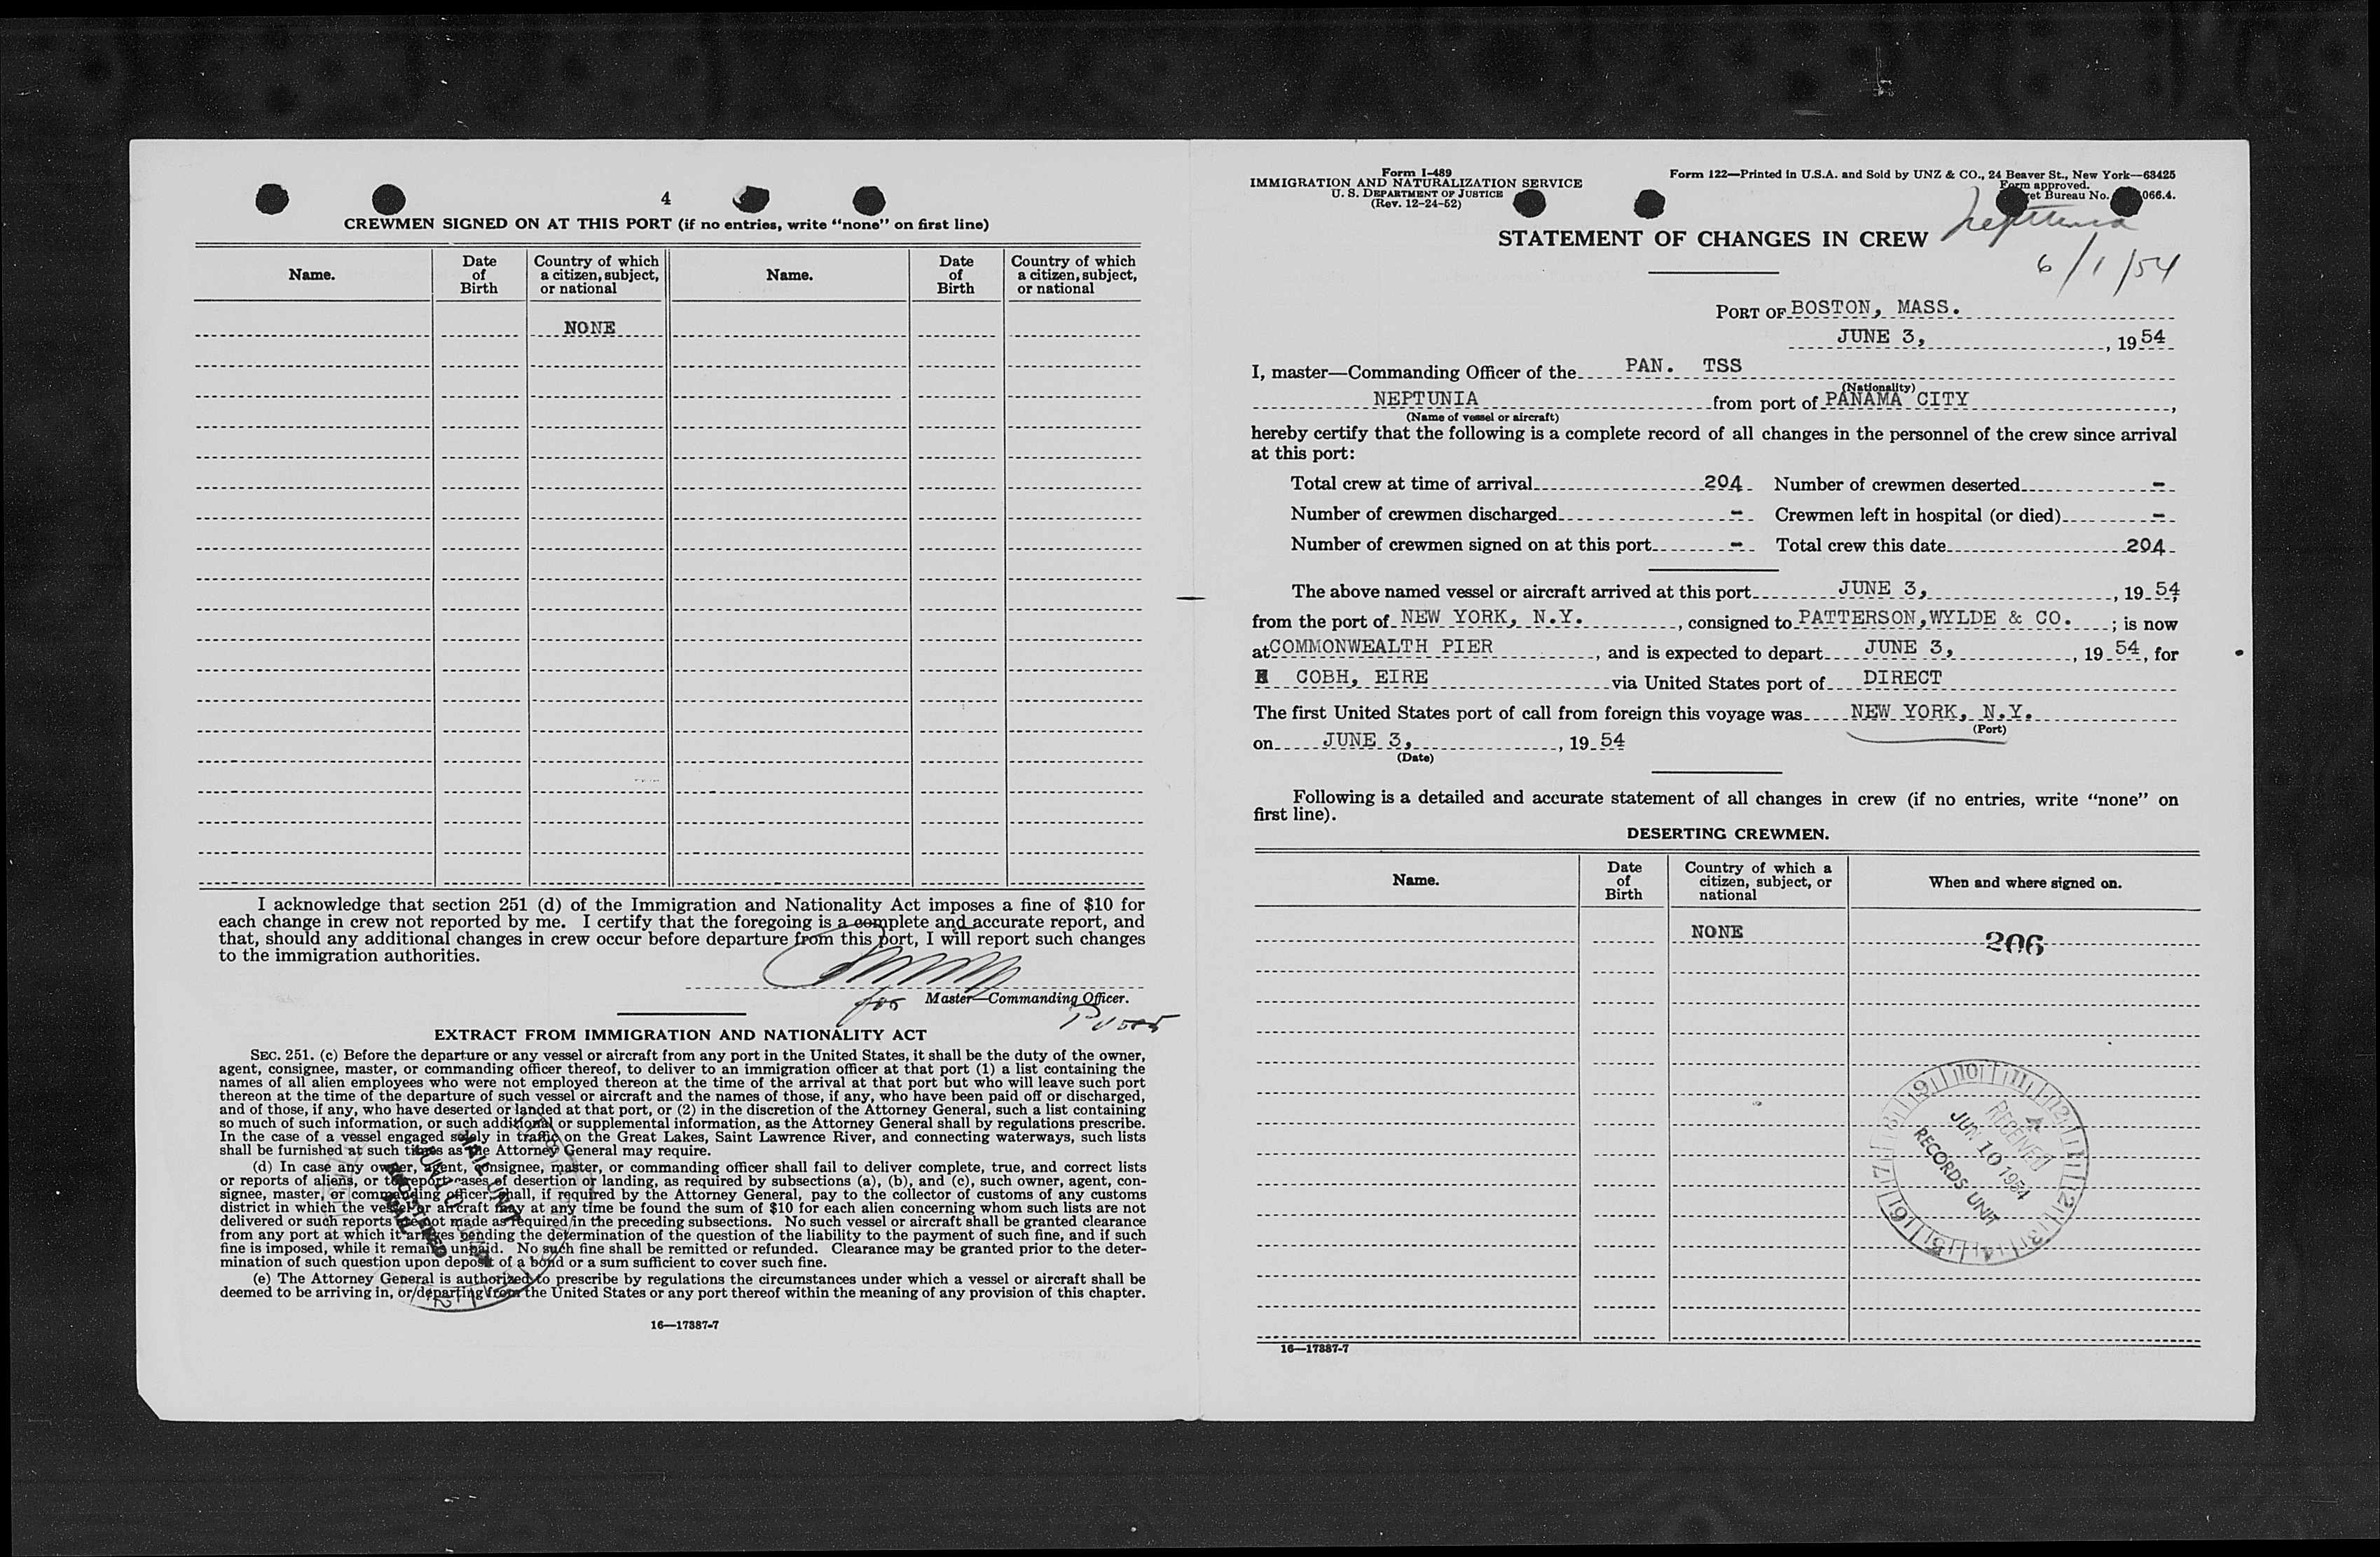 4
CREWMEN SIGNED ON AT THIS PORT (if no entries, write “none” on first line)
Name. Date of Birth Country of which a citizen, subject, or national Name. Date of Birth Country of which a citizen, subject, or national
NONE
I acknowledge that section 251 (d) of the Immigration and Nationality Act imposes a fine of $10 for
each change in crew not reported by me. I certify that the foregoing is a complete and accurate report, and
that, should any additional changes in crew occur before departure from this port, I will report such changes
to the immigration authorities.
for Master—Commanding Officer.
EXTRACT FROM IMMIGRATION AND NATIONALITY ACT
SEC. 251. (c) Before the departure or any vessel or aircraft from any port in the United States, it shall be the duty of the owner,
agent, consignee, master, or commanding officer thereof, to deliver to an immigration officer at that port (1) a list containing the
names of all alien employees who were not employed thereon at the time of the arrival at that port but who will leave such port
thereon at the time of the departure of such vessel or aircraft and the names of those, if any, who have been paid off or discharged,
and of those, if any, who have deserted or landed at that port, or (2) in the discretion of the Attorney General, such a list containing
so much of such information, or such additional or supplemental information, as the Attorney General shall by regulations prescribe.
In the case of a vessel engaged solely in traffic on the Great Lakes, Saint Lawrence River, and connecting waterways, such lists
shall be furnished at such times as the Attorney General may require.
(d) In case any owner, agent, consignee, master, or commanding officer shall fail to deliver complete, true, and correct lists
or reports of aliens, or to report cases of desertion or landing, as required by subsections (a), (b), and (c), such owner, agent, con-
signee, master, or commanding officer, shall, if required by the Attorney General, pay to the collector of customs of any customs
district in which the vessel or aircraft may at any time be found the sum of $10 for each alien concerning whom such lists are not
delivered or such reports are not made as required in the preceding subsections. No such vessel or aircraft shall be granted clearance
from any port at which it arrives pending the determination of the question of the liability to the payment of such fine, and if such
fine is imposed, while it remains unpaid. No such fine shall be remitted or refunded. Clearance may be granted prior to the deter-
mination of such question upon deposit of a bond or a sum sufficient to cover such fine.
(e) The Attorney General is authorized to prescribe by regulations the circumstances under which a vessel or aircraft shall be
deemed to be arriving in, or departing from the United States or any port thereof within the meaning of any provision of this chapter.
MAIL UNIT
16—17887-7
Form I-489
IMMIGRATION AND NATURALIZATION SERVICE
U. S. DEPARTMENT OF JUSTICE
(Rev. 12-24-52)
Form 122—Printed in U.S.A. and Sold by UNZ & CO., 24 Beaver St., New York—63425
Form approved.
et Bureau No. 066.4.
Neptunia
6/1/54
STATEMENT OF CHANGES IN CREW
PORT OF BOSTON, MASS.
JUNE 3, , 19 54
I, master—Commanding Officer of the PAN. TSS
(Nationality)
NEPTUNIA from port of PANAMA CITY ,
(Name of vessel or aircraft)
hereby certify that the following is a complete record of all changes in the personnel of the crew since arrival
at this port:
Total crew at time of arrival 204 Number of crewmen deserted -
Number of crewmen discharged - Crewmen left in hospital (or died) -
Number of crewmen signed on at this port - Total crew this date 204
The above named vessel or aircraft arrived at this port JUNE 3, , 19 54
from the port of NEW YORK, N.Y. , consigned to PATTERSON,WYLDE & CO. ; is now
at COMMONWEALTH PIER , and is expected to depart JUNE 3, , 19 54, for
COBH, EIRE via United States port of DIRECT
The first United States port of call from foreign this voyage was NEW YORK, N.Y.
(Port)
on JUNE 3, , 19 54
(Date)
Following is a detailed and accurate statement of all changes in crew (if no entries, write “none” on
first line).
DESERTING CREWMEN.
Name. Date of Birth Country of which a citizen, subject, or national When and where signed on.
NONE 206
RECEIVED
JUN 10 1954
RECORDS UNIT
16—17887-7